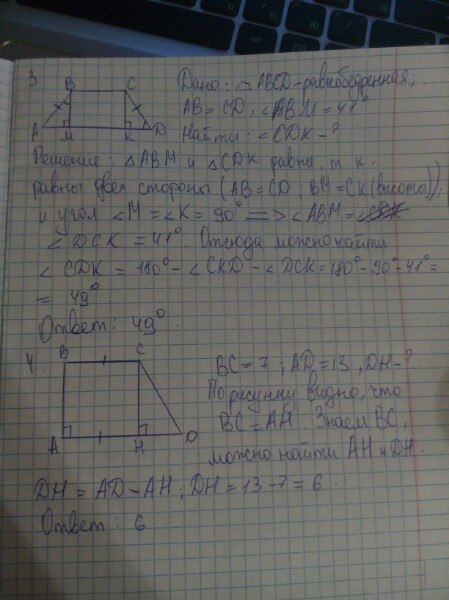 3
B C
A M K D
Дано: ⏢ABCD - равнобедренная;
AB = CD, ∠ABM = 41°
Найти: ∠CDK - ?
Решение: △ABM и △CDK равны, т к.
равны две стороны (AB = CD; BM = CK (высоты));
и угол ∠M = ∠K = 90° => ∠ABM =
∠DCK = 41°. Отсюда можно найти
∠CDK = 180° - ∠CKD - ∠DCK = 180° - 90° - 41° =
= 49°
Ответ: 49°.
4.
B C
A H D
BC = 7; AD = 13, DH - ?
По рисунку видно, что
BC = AH. Зная BC,
можно найти AH и DH.
DH = AD - AH; DH = 13 - 7 = 6.
Ответ: 6